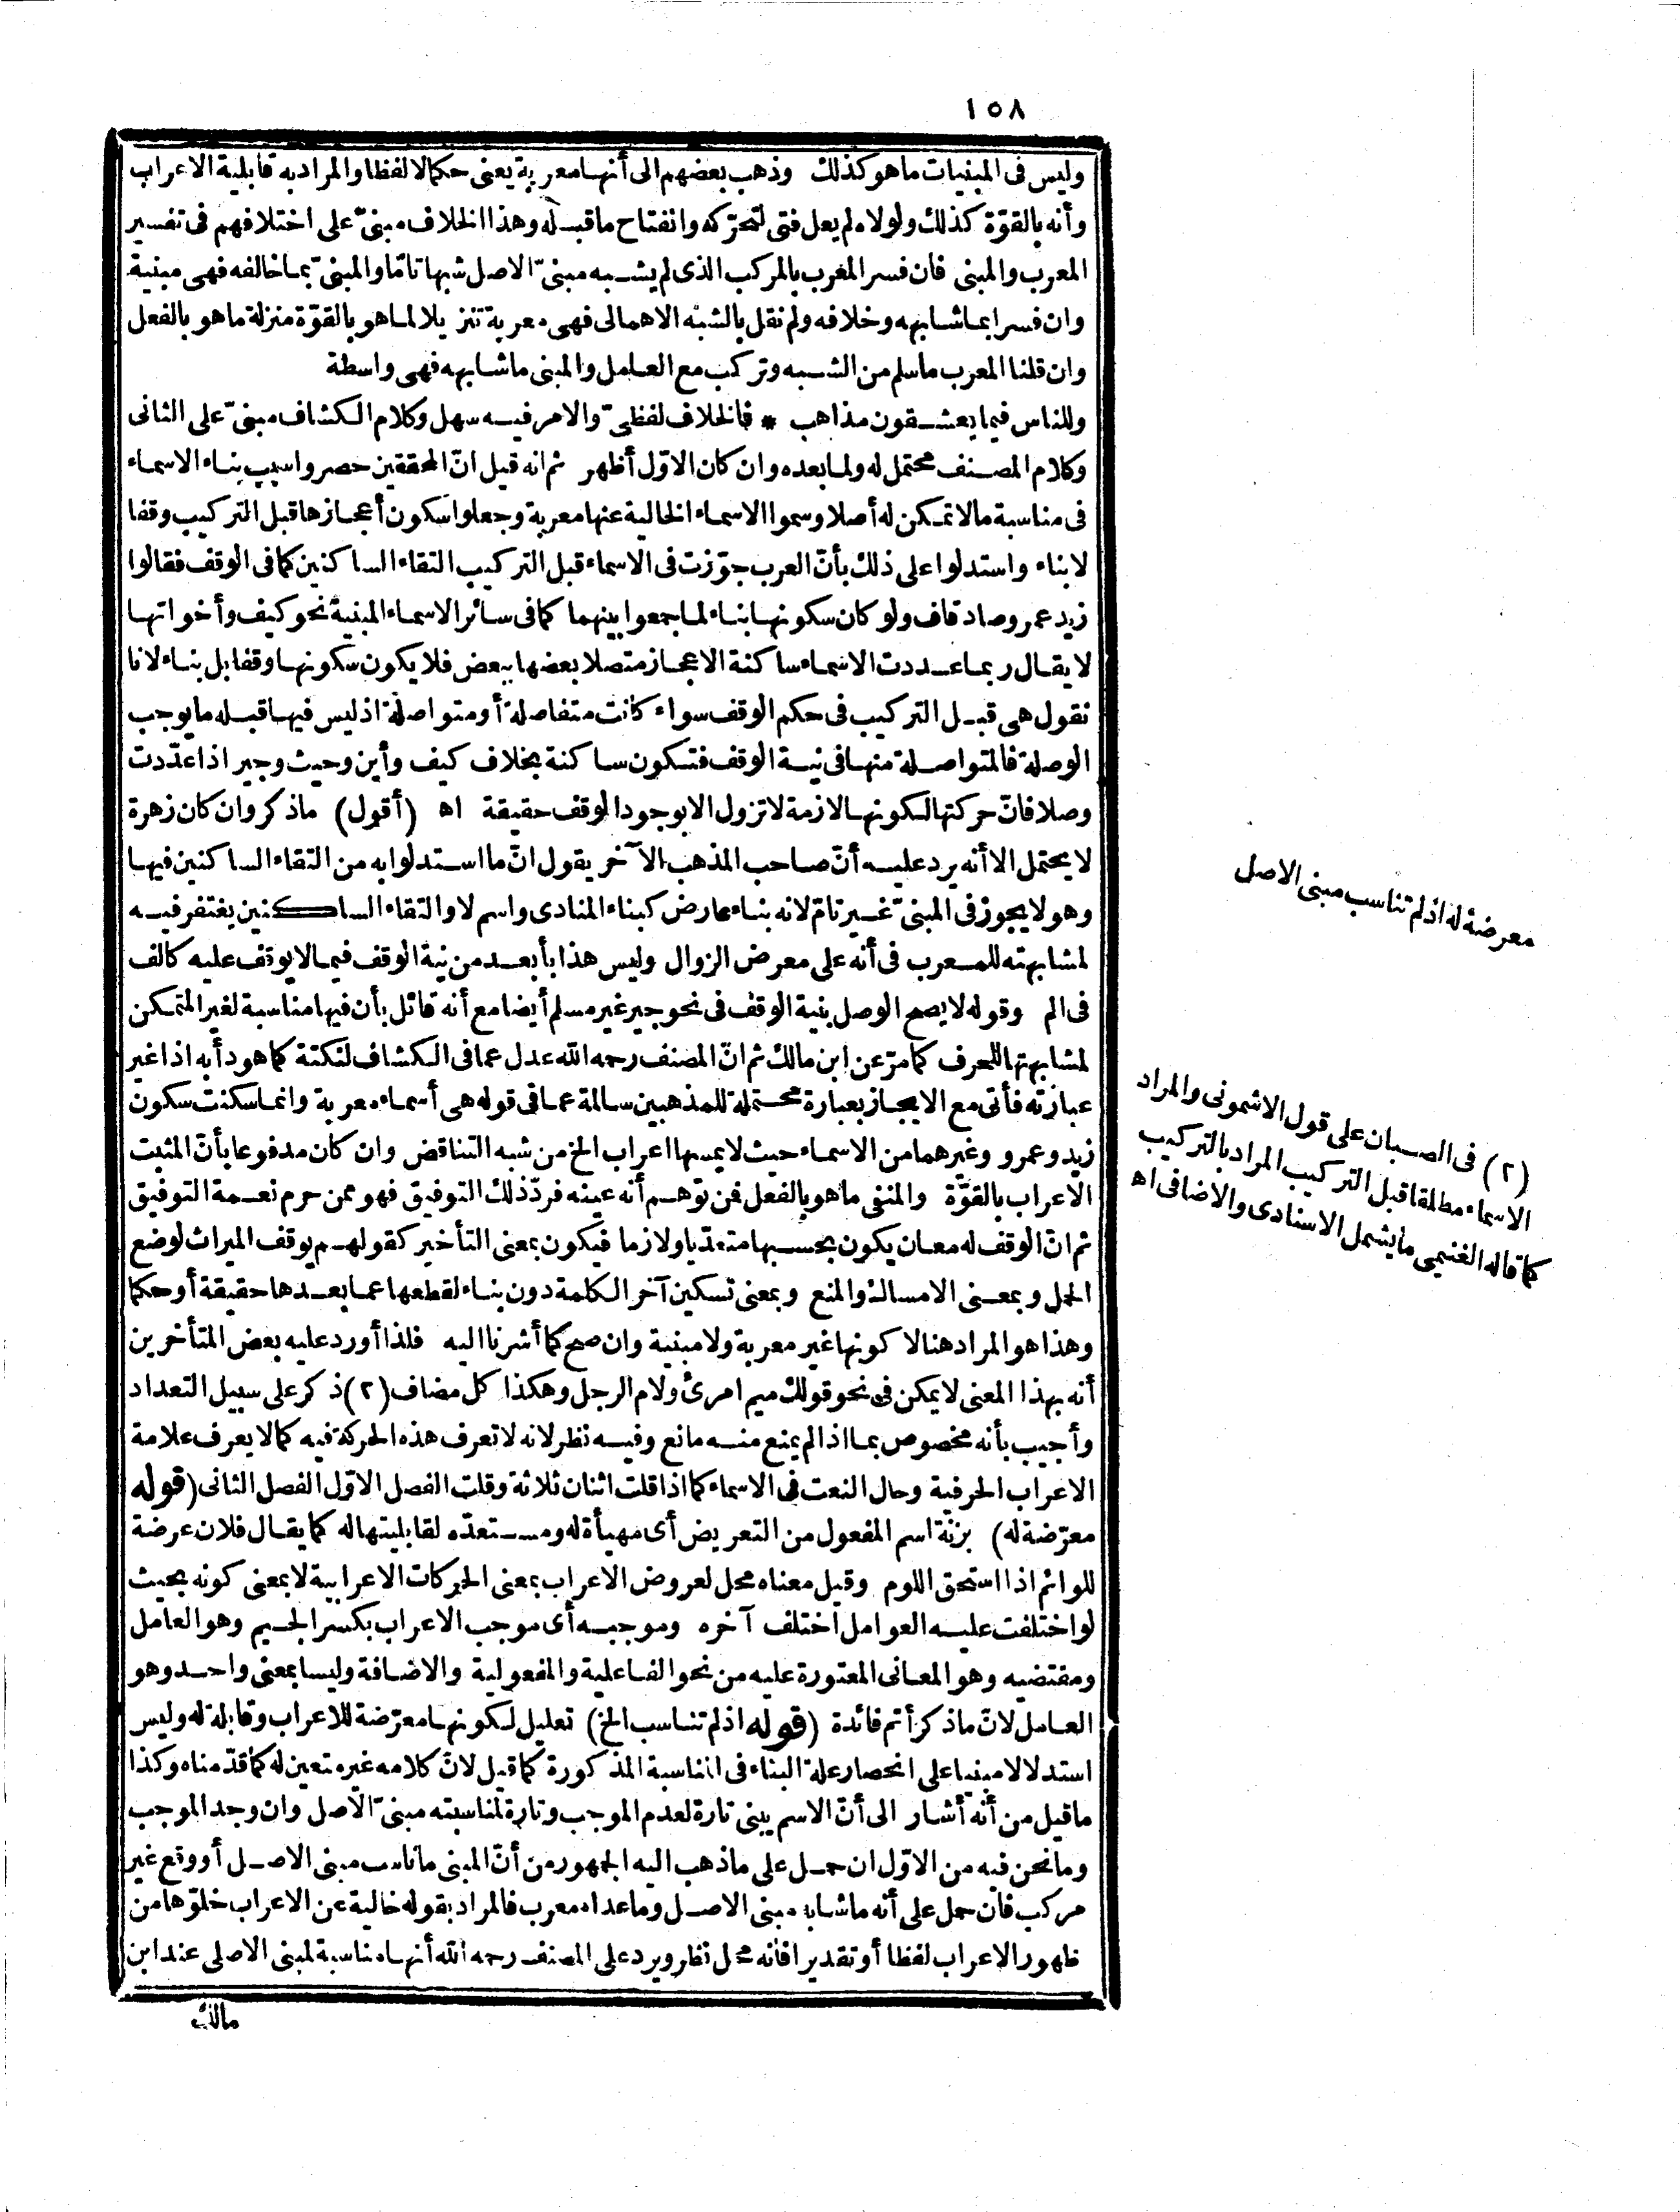 ١٥٨
وليس فى المبنيات ما هو كذلك وذهب بعضهم الى أنها معربة يعنى حكما لا لفظا والمراد به قابلية الاعراب
وأنه بالقوّة كذلك ولولاه لم يعل فتى لتحرّكه وانفتاح ما قبله وهذا الخلاف مبنىّ على اختلافهم فى تفسير
المعرب والمبنى فان فسر المعرب بالمركب الذى لم يشبه مبنىّ الاصل شبها تامّا والمبنىّ بما خالفه فهى مبنية
وان فسرا بما شابهه وخلافه ولم نقل بالشبه الاهمالى فهى معربة تنزيلا لما هو بالقوّة منزلة ما هو بالفعل
وان قلنا المعرب ما سلم من الشبه وتركب مع العامل والمبنى ما شابهه فهى واسطة
وللناس فيما يعشقون مذاهب * فالخلاف لفظىّ والامر فيه سهل وكلام الكشاف مبنىّ على الثانى
وكلام المصنف محتمل له ولما بعده وان كان الاوّل أظهر ثم انه قيل انّ المحققين حصروا سبب بناء الاسماء
فى مناسبة ما لا تمكن له أصلا وسموا الاسماء الخالية عنها معربة وجعلوا سكون أعجازها قبل التركيب وقفا
لا بناء واستدلوا على ذلك بأنّ العرب جوّزت فى الاسماء قبل التركيب التقاء الساكنين كما فى الوقف فقالوا
زيد عمرو صاد قاف ولو كان سكونها بناء لما جمعوا بينهما كما فى سائر الاسماء المبنية نحو كيف وأخواتها
لا يقال ربما عددت الاسماء ساكنة الاعجاز متصلا بعضها ببعض فلا يكون سكونها وقفا بل بناء لانا
نقول هى قبل التركيب فى حكم الوقف سواء كانت متفاصلة أو متواصلة اذ ليس فيها قبله ما يوجب
الوصلة فالمتواصلة منها فى نية الوقف فتكون ساكنة بخلاف كيف وأين وحيث وجير اذا عدّدت
وصلا فانّ حركتها لكونها لازمة لا تزول الا بوجود الوقف حقيقة اه (أقول) ما ذكر وان كان زهرة
لا يحتمل الا أنه يرد عليه أنّ صاحب المذهب الآخر يقول انّ ما استدلوا به من التقاء الساكنين فيها
وهو لا يجوز فى المبنىّ غير تامّ لانه بناء عارض كبناء المنادى واسم لا والتقاء الساكنين يغتفر فيه
لمشابهته للمعرب فى أنه على معرض الزوال وليس هذا بأبعد من نية الوقف فيما لا يوقف عليه كالف
فى الم وقوله لا يصح الوصل بنية الوقف فى نحو جير غير مسلم أيضا مع أنه قائل بأن فيها مناسبة لغير المتمكن
لمشابهتها للحرف كما مرّ عن ابن مالك ثم انّ المصنف رحمه الله عدل عما فى الكشاف لنكتة كما هو دأبه اذا غير
عبارته فأتى مع الايجاز بعبارة محتملة للمذهبين سالمة عما فى قوله هى أسماء معربة وانما سكنت سكون
زيد وعمرو وغيرهما من الاسماء حيث لا يمسها اعراب الخ من شبه التناقض وان كان مدفوعا بأنّ المثبت
الاعراب بالقوّة والمنفى ما هو بالفعل فمن توّهم أنه عينه فردّ ذلك التوفيق فهو ممن حرم نعمة التوفيق
ثم انّ الوقف له معان يكون بحسبها متعدّيا ولازما فيكون بمعنى التأخير كقولهم يوقف الميراث لوضع
الحمل وبمعنى الامساك والمنع وبمعنى تسكين آخر الكلمة دون بناء لقطعها عما بعدها حقيقة أو حكما
وهذا هو المراد هنا لا كونها غير معربة ولا مبنية وان صح كما أشرنا اليه فلذا أورد عليه بعض المتأخرين
أنه بهذا المعنى لا يمكن فى نحو قولك ميم امرئ ولام الرجل وهكذا كل مضاف (٢) ذكر على سبيل التعداد
وأجيب بأنه مخصوص بما اذا لم يمنع منه مانع وفيه نظر لانه لا تعرف هذه الحركة فيه كما لا يعرف علامة
الاعراب الحرفية وحال النعت فى الاسماء كما اذا قلت اثنان ثلاثة وقلت الفصل الاوّل الفصل الثانى (قوله
معرّضة له) بزنة اسم المفعول من التعريض أى مهيأة له ومستعدّه لقابليتها له كما يقال فلان عرضة
للوائم اذا استحق اللوم وقيل معناه محل لعروض الاعراب بمعنى الحركات الاعرابية لا بمعنى كونه بحيث
لو اختلفت عليه العوامل اختلف آخره وموجبه أى موجب الاعراب بكسر الجيم وهو العامل
ومقتضيه وهو المعانى المعتورة عليه من نحو الفاعلية والمفعولية والاضافة وليسا بمعنى واحد وهو
العامل لانّ ما ذكر أتم فائدة (قوله اذ لم تناسب الخ) تعليل لكونها معرّضة للاعراب وقابلة له وليس
استدلالا مبنيا على انحصار علة البناء فى المناسبة المذكورة كما قيل لانّ كلامه غير متعين له كما قدّمناه وكذا
ما قيل من أنه أشار الى أنّ الاسم يبنى تارة لعدم الموجب وتارة لمناسبته مبنىّ الاصل وان وجد الموجب
وما نحن فيه من الاوّل ان حمل على ما ذهب اليه الجمهور من أنّ المبنى ما ناسب مبنى الاصل أو وقع غير
مركب فان حمل على أنه ما شابه مبنى الاصل وما عداه معرب فالمراد بقوله خالية عن الاعراب خلوّها من
ظهور الاعراب لفظا أو تقديرا فانه محل نظر ويرد على المصنف رحمه الله أنها مناسبة لمبنى الاصلى عند ابن
مالك
معرضة له اذ لم تناسب مبنى الاصل
(٢) فى الصبان على قول الاشمونى والمراد
الاسماء مطلقا قبل التركيب المراد بالتركيب
كما قاله الغنيمى ما يشمل الاسنادى والاضافى اه